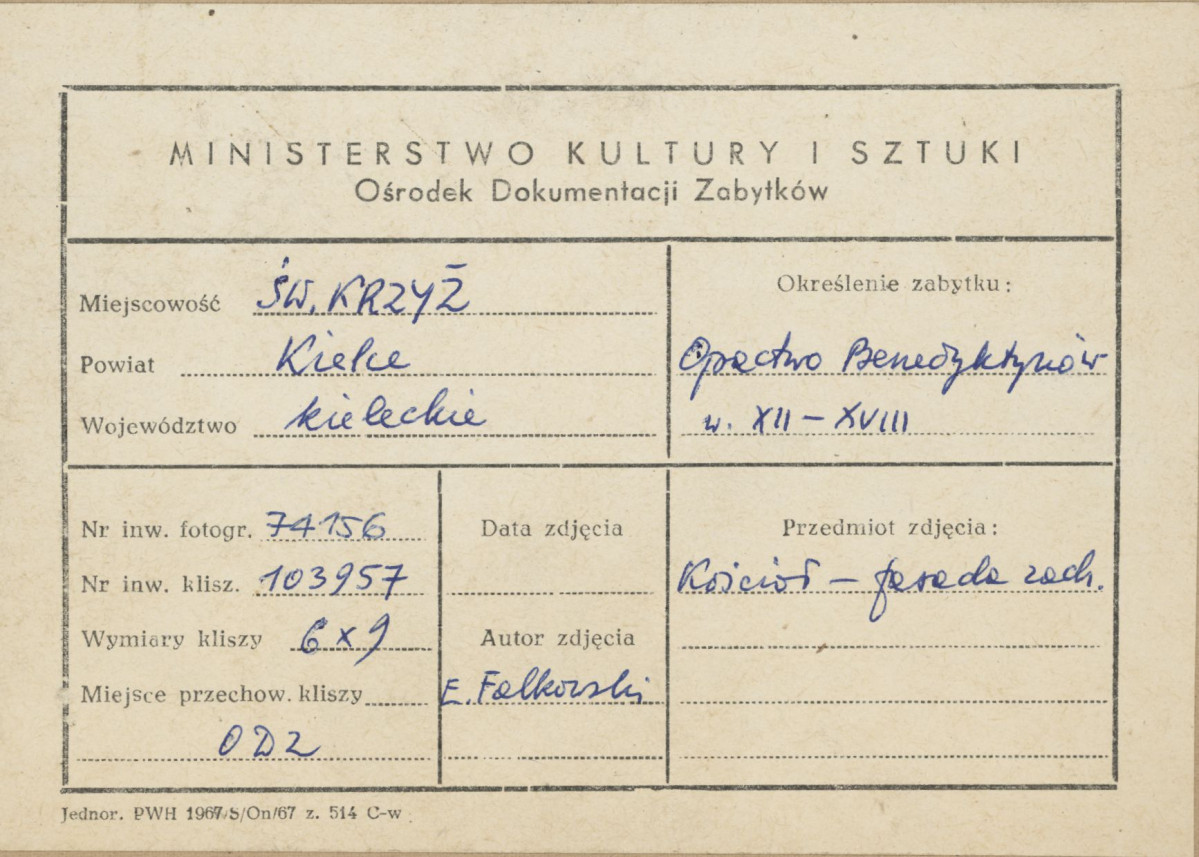 MINISTERSTWO KULTURY I SZTUKI
Ośrodek Dokumentacji Zabytków
Miejscowość ŚW. KRZYŻ
Powiat Kielce
Województwo kieleckie
Określenie zabytku:
Opactwo Benedyktynów
w. XII – XVIII
Nr inw. fotogr. 74156
Nr inw. klisz. 103957
Wymiary kliszy 6 x 9
Miejsce przechow. kliszy
ODZ
Data zdjęcia
Autor zdjęcia
E. Falkowski
Przedmiot zdjęcia:
Kościół – fasada zach.
Jednor. PWH 1967 S/On/67 z. 514 C-w